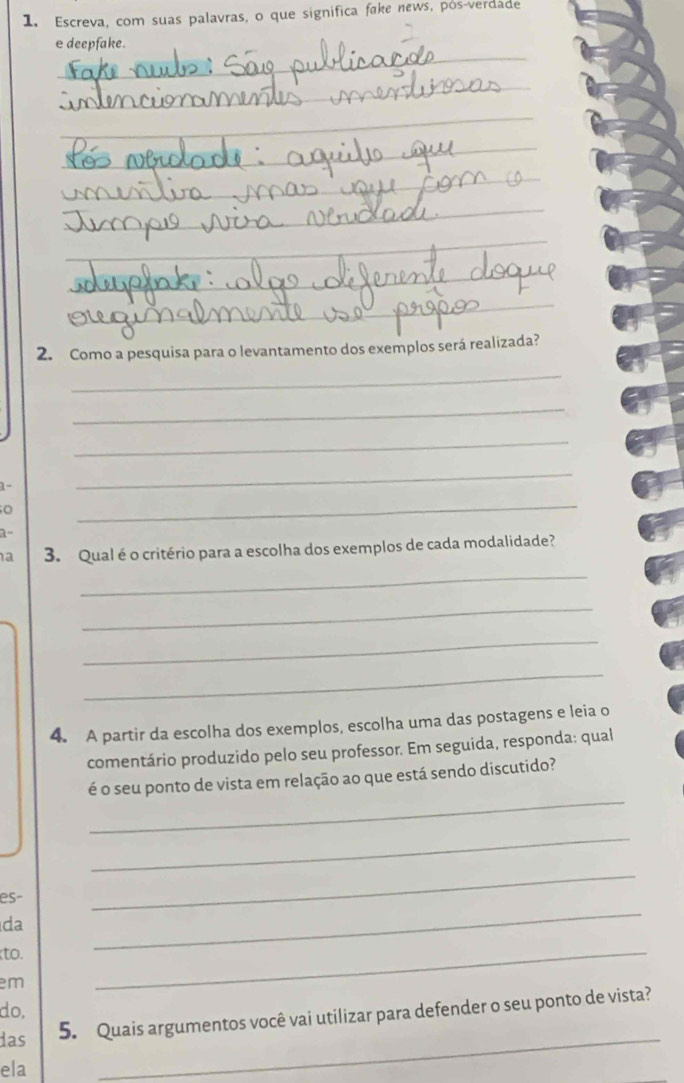 1. Escreva, com suas palavras, o que significa fake news, pós-verdade
e deepfake.
Fake news: São publicação
intencionamentes mentirosas
Pós verdade: aquilo que
mentira mas que com o
Tempo vira verdade.
deepfake: algo diferente doque
oreginalmente se propos
2. Como a pesquisa para o levantamento dos exemplos será realizada?
a-
so
a-
na
3. Qual é o critério para a escolha dos exemplos de cada modalidade?
4. A partir da escolha dos exemplos, escolha uma das postagens e leia o
comentário produzido pelo seu professor. Em seguida, responda: qual
é o seu ponto de vista em relação ao que está sendo discutido?
es-
da
xto.
em
do,
das
5. Quais argumentos você vai utilizar para defender o seu ponto de vista?
ela